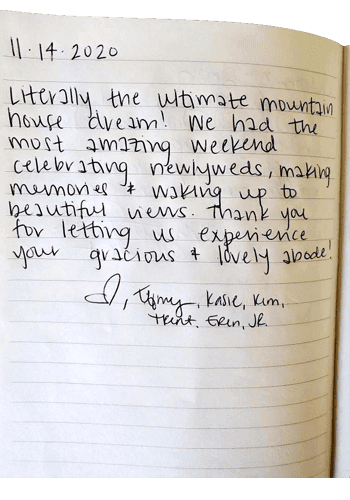 11.14.2020
Literally the ultimate mountain
house dream! We had the
most amazing weekend
celebrating newlyweds, making
memories & waking up to
beautiful views. Thank you
for letting us experience
your gracious & lovely abode!
♡, Tommy, Kasie, Kim,
Trent, Erin, JR.